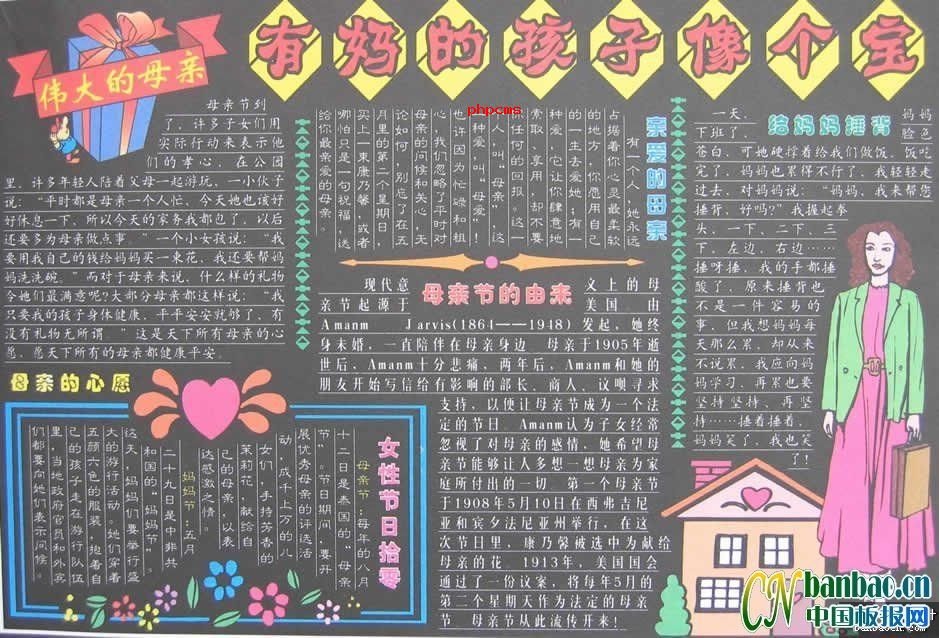 有妈的孩子像个宝
伟大的母亲
母亲节到
了，许多子女们用
实际行动来表示他
们的孝心，在公园
里，许多年轻人陪着父母一起游玩，一小伙子
说：“平时都是母亲一个人忙，今天她也该好
好休息一下，所以今天的家务我都包了，以后
还要多为母亲做点事。”一个小女孩说：“我
要用我自己的钱给妈妈买一束花，我还要帮妈
妈洗洗碗。”而对于母亲来说，什么样的礼物
令她们最满意呢？大部分母亲都这样说：“我
只要我的孩子身体健康，平平安安就够了，有
没有礼物无所谓 ”这是天下所有母亲的心
愿，愿天下所有的母亲都健康平安。
母亲的心愿
phpcms
亲爱的母亲
有一个人，她永远
占据着你心灵最柔软
的地方，你愿用自己
的一生去爱她；有一
种爱，它让你肆意地
索取，享用，却不要
你任何的回报。这一
人，叫“母亲，”这一
种爱，叫“母爱！”
也许因为忙碌和粗
心，我们忽略了平时对
母亲的问候和关心，无
论如何，别忘了在五
月里的第二个星期日，
买上一束康乃馨，或者
哪怕只是一句祝福，送
给你最亲爱的母亲。
给妈妈捶背
一天，妈妈
下班了，脸色
苍白，可她硬撑着给我们做饭。饭吃
完了，妈妈也累得不行了，我轻轻走
过去，对妈妈说：“妈妈，我来帮您
捶背，好吗？”我握起拳
头，一下、二下、三
下，左边，右边……
捶呀捶，我的手都捶
酸了，原来捶背也
不是一件容易的
事，但我想妈妈每
天那么累，却从来
不说累，我应向妈
妈学习，再累也要
坚持坚持、再坚
持……捶着捶着，
妈妈笑了，我也笑
了！
母亲节的由来
现代意义上的母
亲节起源于美国 由
Amanm Jarvis(1864——1948) 发起，她终
身未婚，一直陪伴在母亲身边 母亲于1905年逝
世后，Amanm十分悲痛，两年后，Amanm和她的
朋友开始写信给有影响的部长、商人、议呗寻求
支持，以便让母亲节成为一个法
定的节日。Amanm认为子女经常
忽视了对母亲的感情，她希望母
亲节能够让人多想一想母亲为家
庭所付出的一切。第一个母亲节
于1908年5月10日在西弗吉尼
亚和宾夕法尼亚州举行，在这
次节日里，康乃馨被选中为献给
母亲的花。1913年，美国国会
通过了一份议案，将每年5月的
第二个星期天作为法定的母亲
节 母亲节从此流传开来！
女性节日拾零
母亲节：每年的八月
十二日是泰国的“母亲
节”。节日期间，要开
展优秀母亲的评选活
动，成千上万的儿
女们，手持芳香的
茉莉花，献给自
己的母亲，以表
达感激之情。
妈妈节：五月
二十九日是中非共
和国的“妈妈节”。
这天，妈妈们要举行盛
大的游行活动。她们穿着
五颜六色的服装，抱着自
己的孩子走在游行队伍
里，当地政府官员和外宾
们都要向她们表示问候。
CN banbao.cn
中国板报网